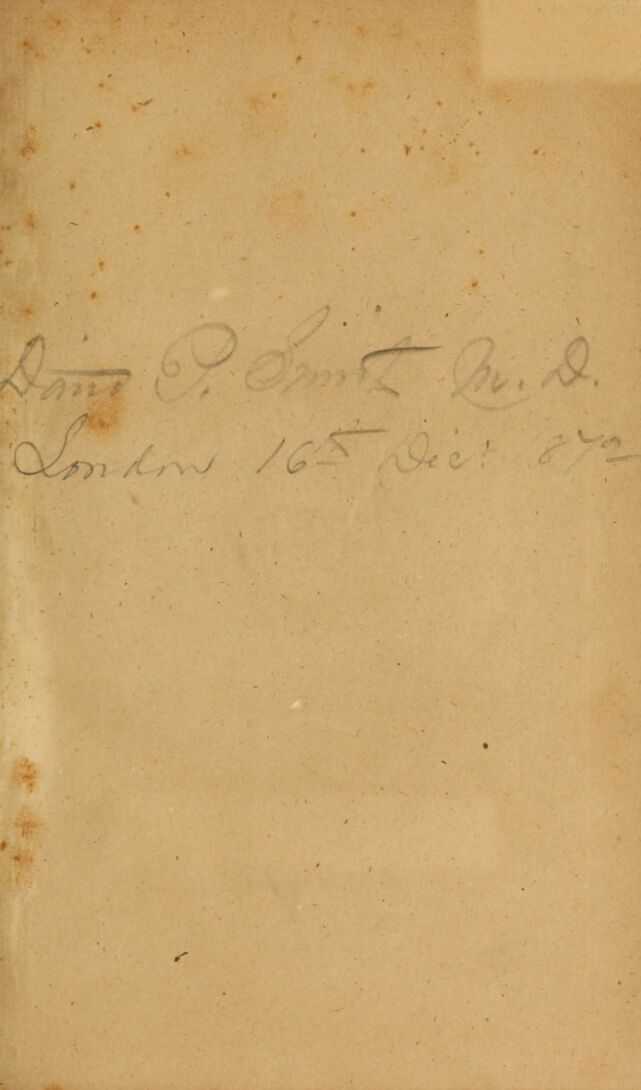 David P. Smith M. D.
London 16th Dec: 1872